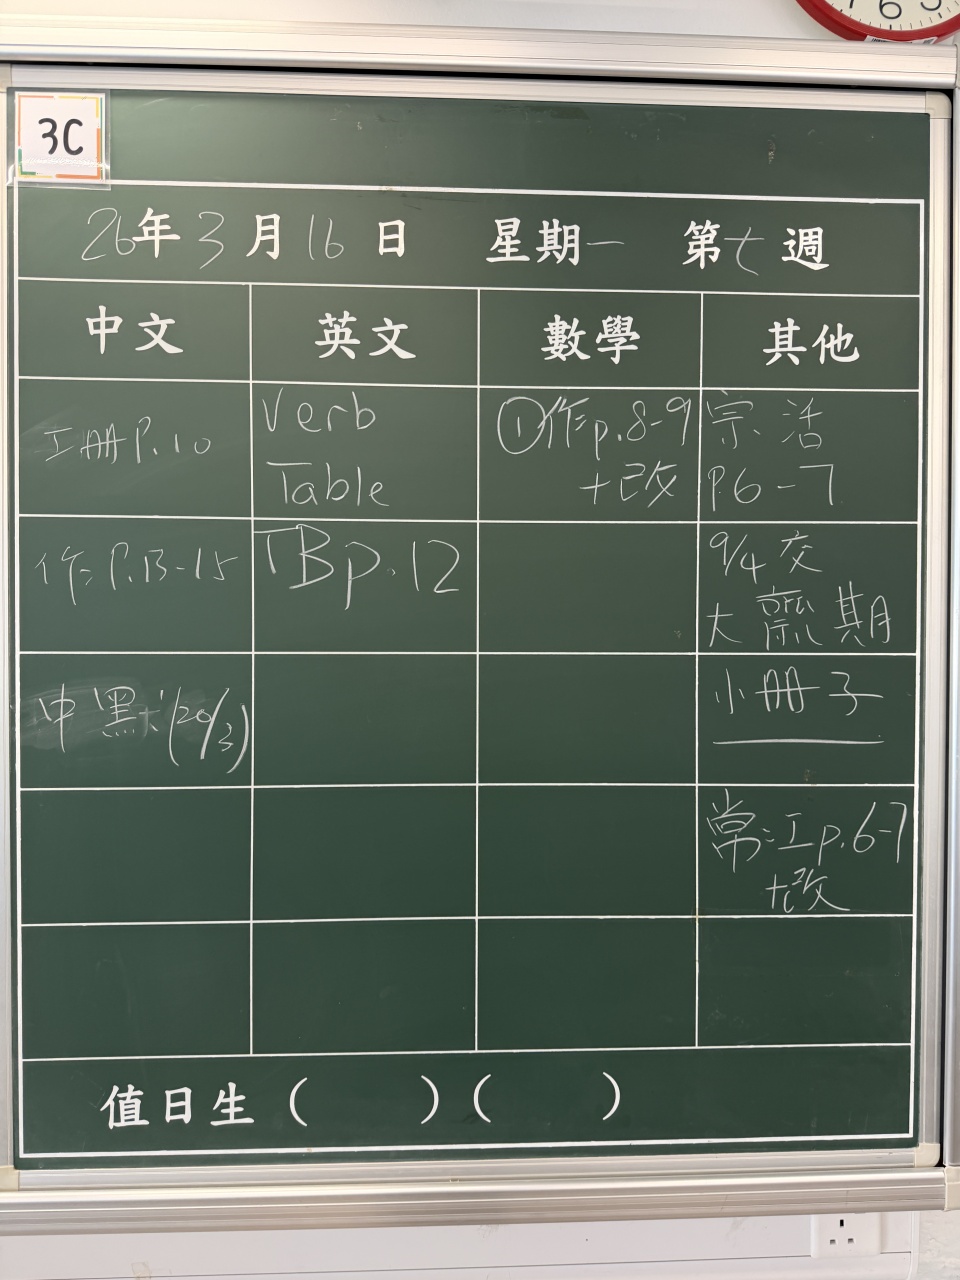 3C
26年3月16日 星期一 第七週
中文 英文 數學 其他
工冊P.10
Verb
Table
①作p.8-9
+改
宗活
P.6-7
作:P.13-15
TBp.12
9/4交
大齋期
小冊子
中默:(20/3)
常:工p.6-7
+改
值日生( )( )